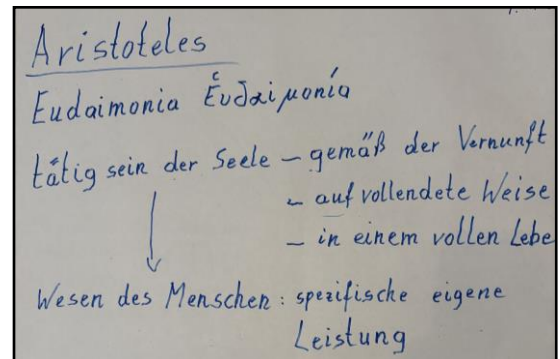 Aristoteles
Eudaimonia Ἐυδαιμονία
tätig sein der Seele – gemäß der Vernunft
– auf vollendete Weise
– in einem vollen Lebe
Wesen des Menschen: spezifische eigene
Leistung